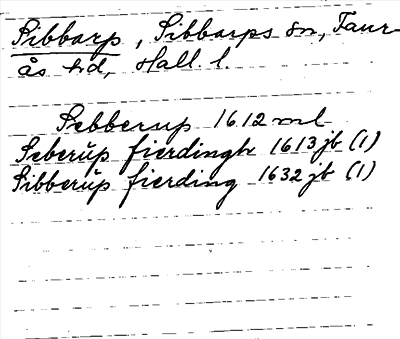 Sibbarp, Sibbarps sn, Faur-
ås hd, Hall. l.
Sebberup 1612 ml
Seberŭp fierdingh 1613 jb (1)
Sibberŭp fierding 1632 jb (1)